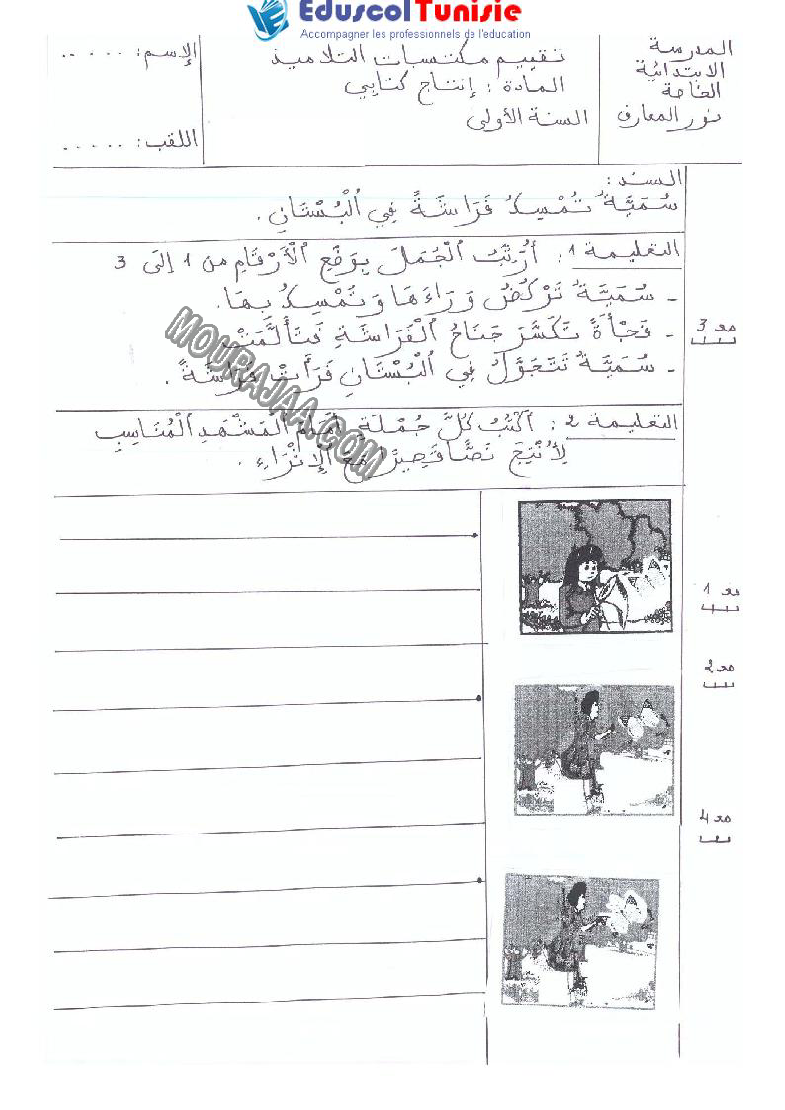 EduscolTunisie
Accompagner les professionnels de l'education
المدرسة
الابتدائية
الخاصة
نور المعارف
تقييم مكتسبات التلاميذ
المادة : إنتاج كتابي
السنة الأولى
الإسم: . . . . .
اللقب: . . . . .
السند :
سُمَيَّةُ تُمْسِكُ فَرَاشَةً فِي الْبُسْتَانِ .
التعليمة 1 : أُرَتِّبُ الْجُمَلَ بِوَضْعِ الْأَرْقَامِ من 1 إلَى 3
- سُمَيَّةُ تَرْكُضُ وَرَاءَهَا وَتُمْسِكُ بِهَا.
- فَجْأَةً تَكَسَّرَ جَنَاحُ الْفَرَاشَةِ فَتَأَلَّمَتْ
- سُمَيَّةُ تَتَجَوَّلُ فِي الْبُسْتَانِ فَرَأَتْ فَرَاشَةً .
مع 3
التعليمة 2 : أَكْتُبُ كُلَّ جُمْلَةٍ أَمَامَ الْمَشْهَدِ الْمُنَاسِبِ
لِأُنْتِجَ نَصًّا قَصِيرًا مَعَ الْإِثْرَاءِ .
مع 1
مع 2
مع 4
MOURAJAA.COM